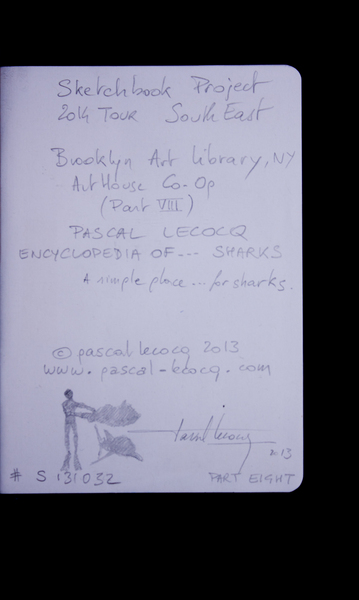 Sketchbook Project
2014 Tour South East
Brooklyn Art Library, NY
Art House Co-Op
(Part VIII)
PASCAL LECOCQ
ENCYCLOPEDIA OF... SHARKS
A simple place... for sharks.
© pascal lecocq 2013
www.pascal-lecocq.com
Pascal Lecocq
2013
# S 131032
PART EIGHT